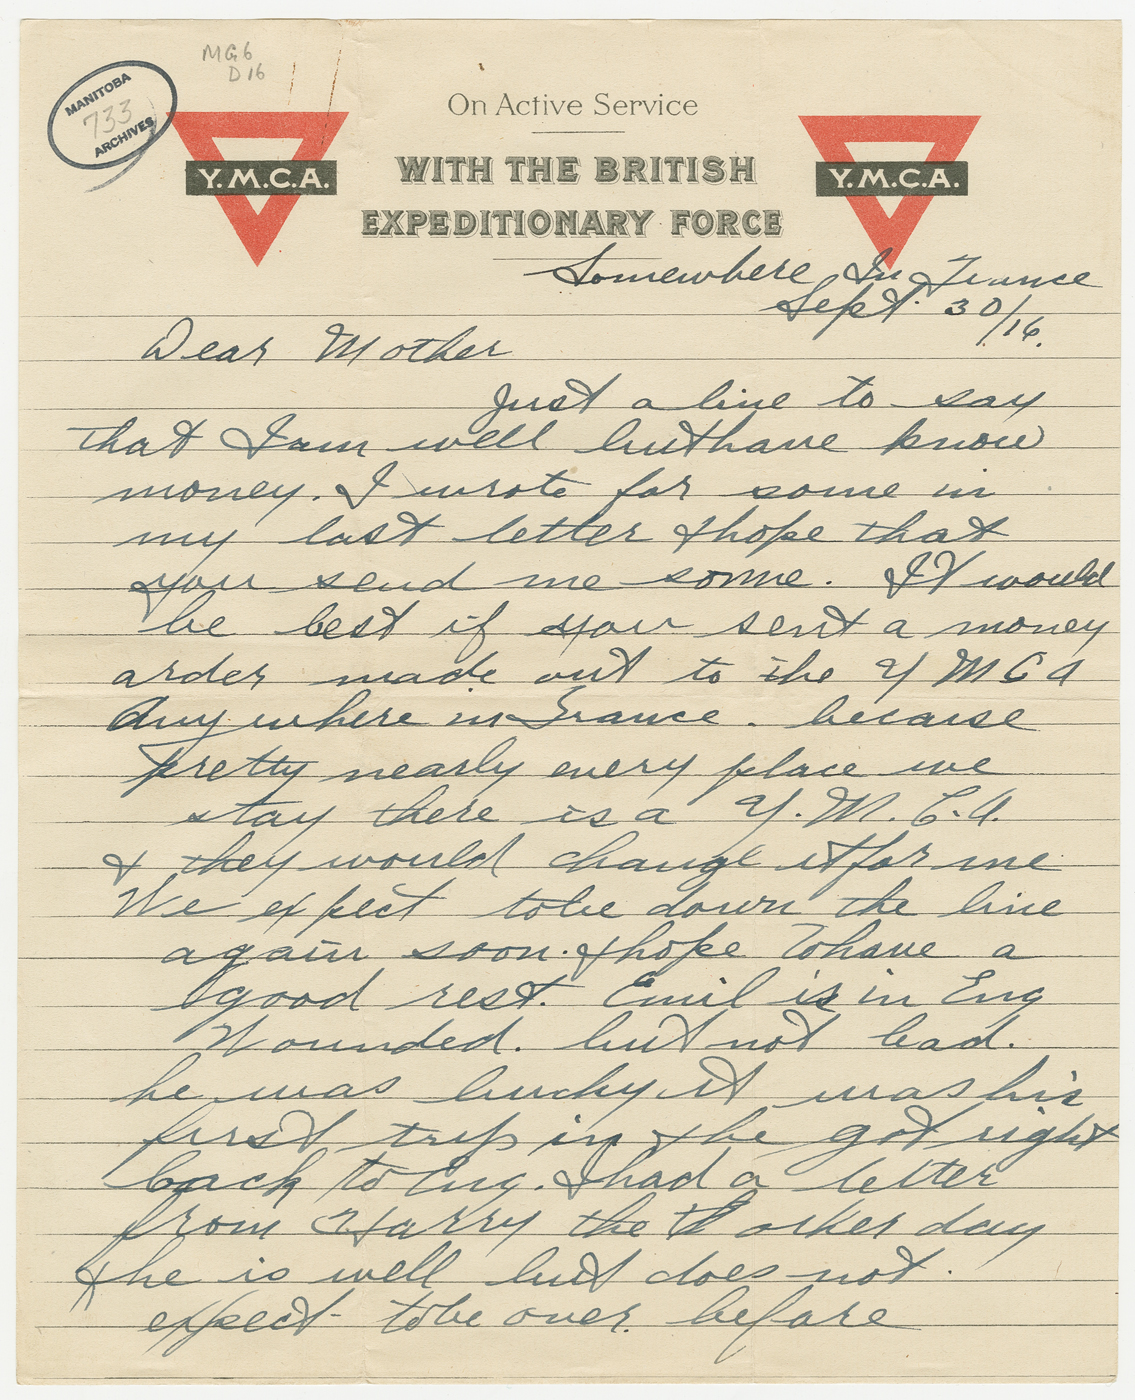 MG6
D16
MANITOBA
733
ARCHIVES
On Active Service
Y.M.C.A. WITH THE BRITISH Y.M.C.A.
EXPEDITIONARY FORCE
Somewhere In France
Sept. 30/16.
Dear Mother
Just a line to say
that I am well but have know
money. I wrote for some in
my last letter & hope that
you send me some. It would
be best if you sent a money
order made out to the Y M C A
Any where in France. because
pretty nearly every place we
stay there is a Y. M. C. A.
& they would change it for me
We expect to be down the line
again soon. & hope to have a
good rest. Emil is in Eng
Wounded. but not bad.
he was lucky it was his
first trip in & he got right
back to Eng. I had a letter
from Harry the other day
& he is well but does not.
expect to be over. before